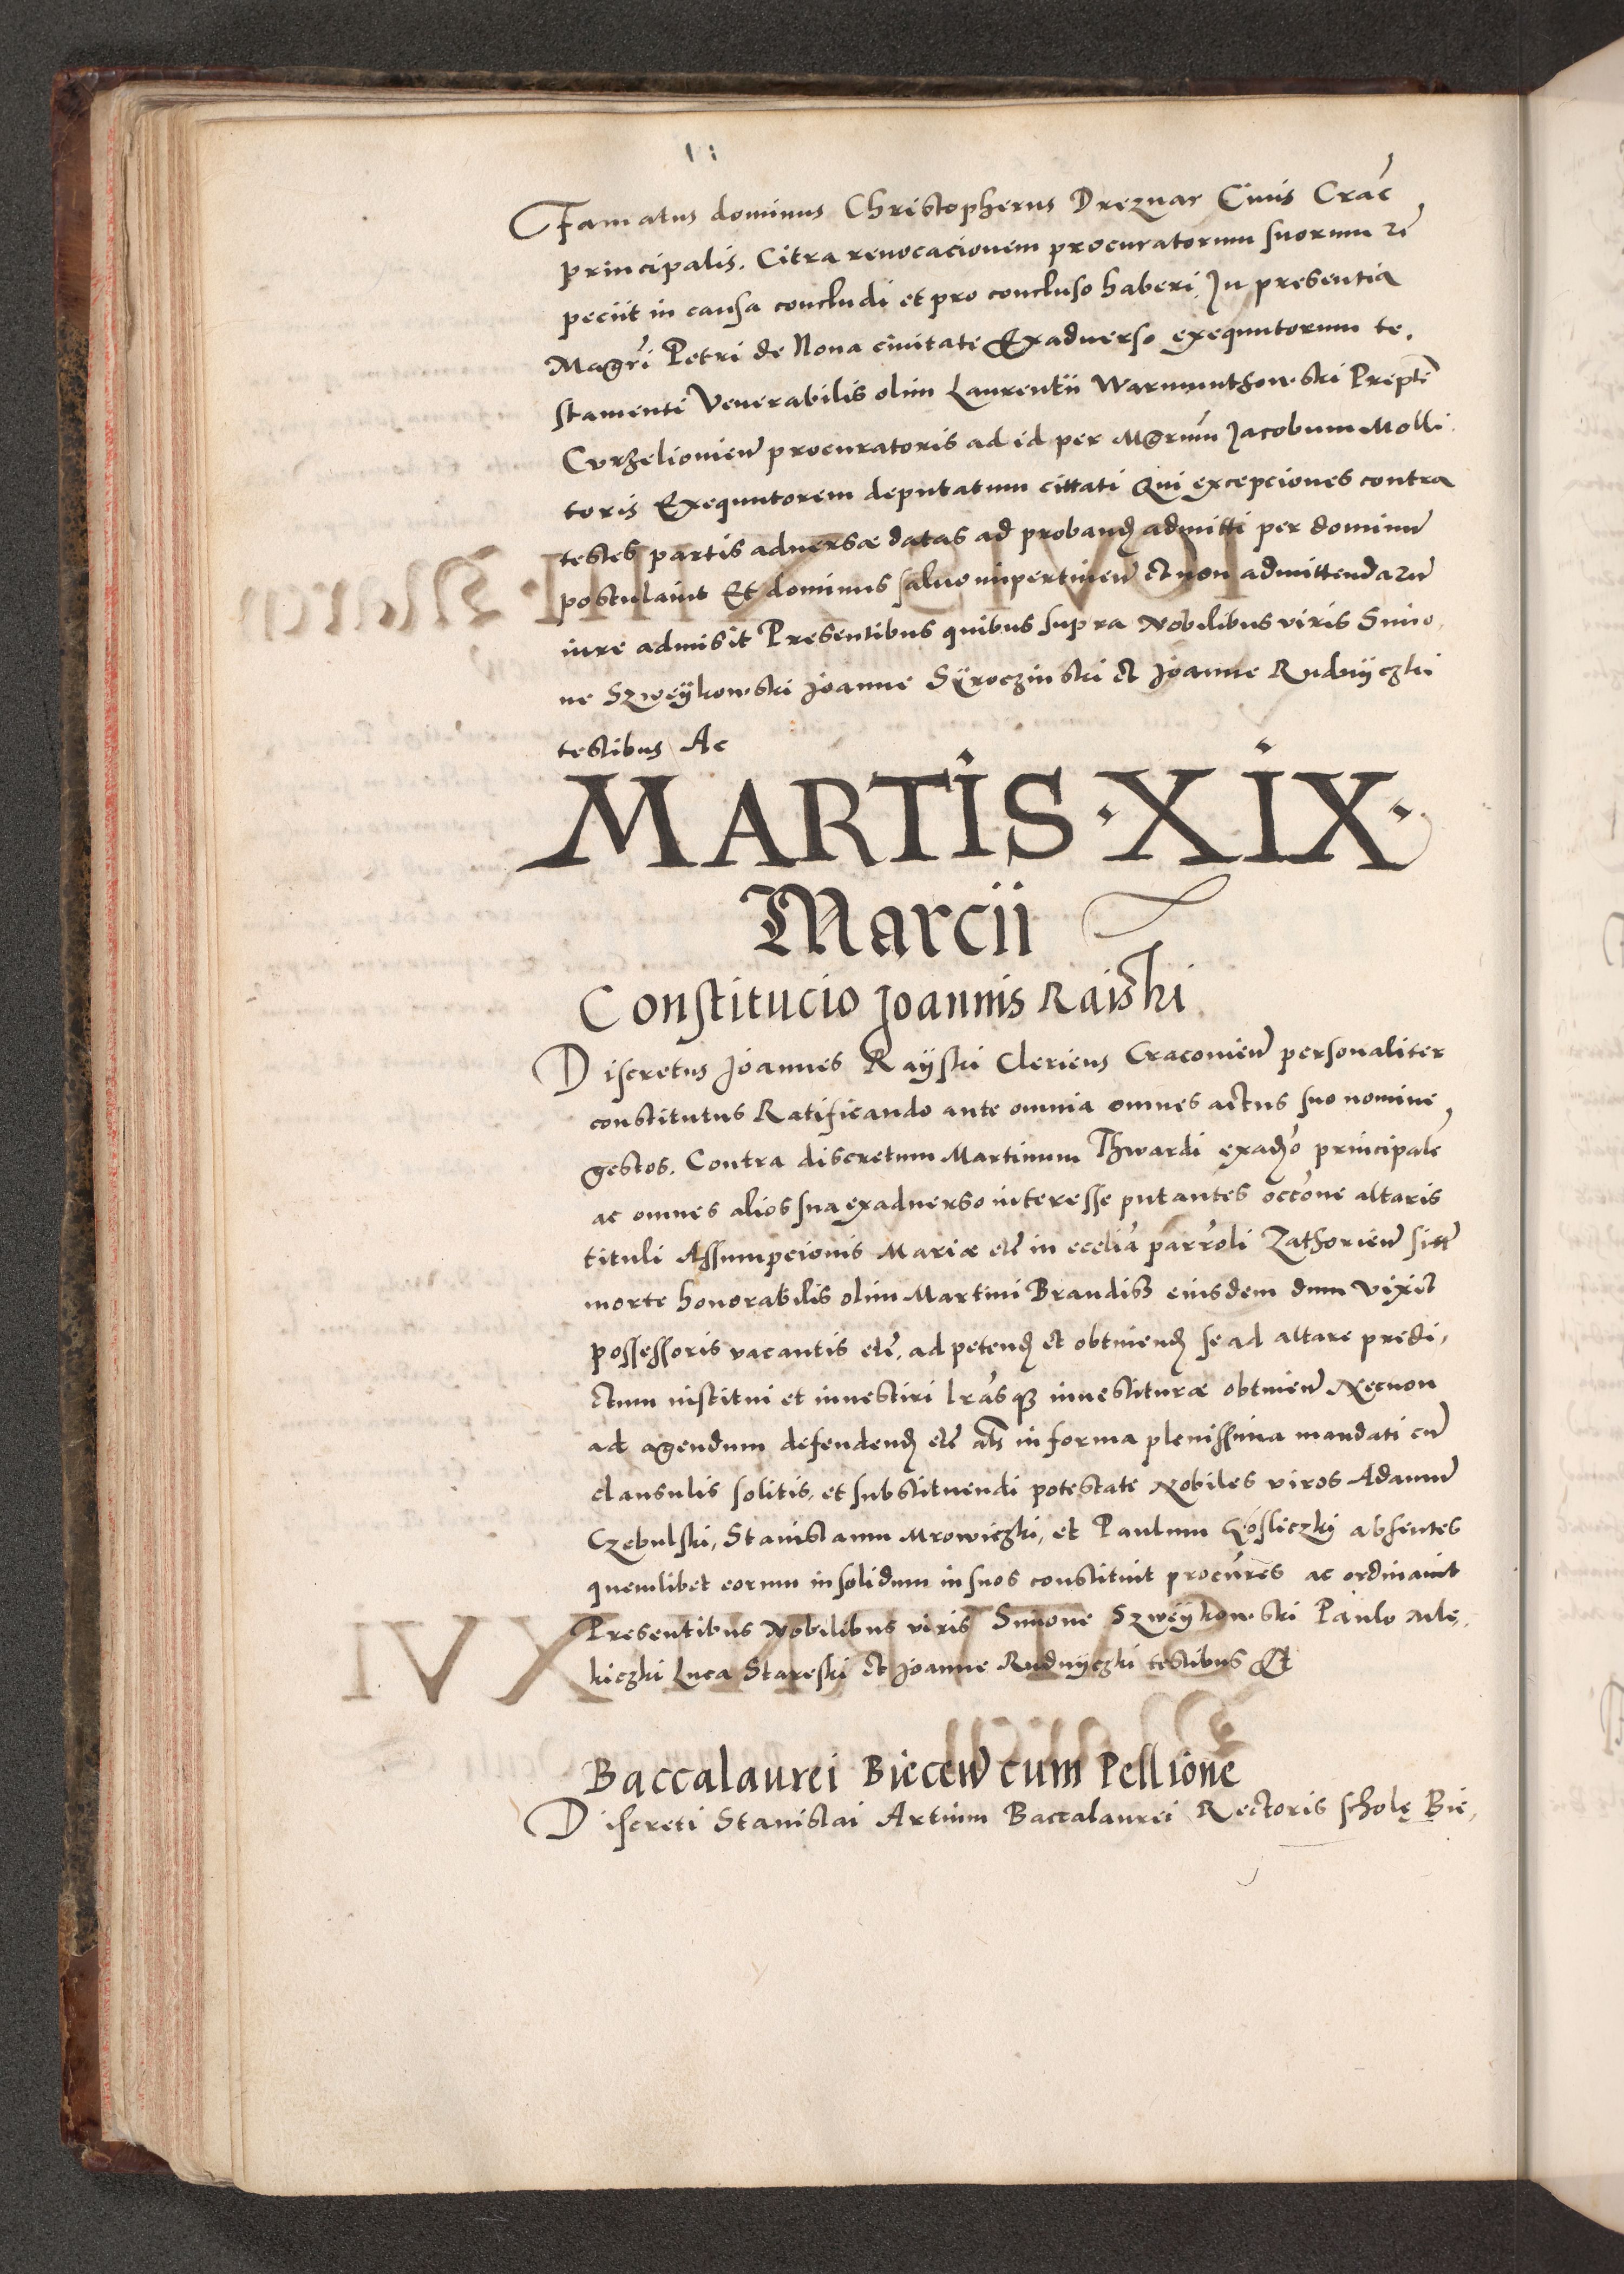 Famatus dominus Christopherus Dreznar Ciuis Crac̃
principalis. Citra reuocacionem procuratorum suorum
peciit in causa concludi et pro concluso haberi. In presentia
Magr̃i Petri de Noua ciuitate Exaduerso exequutorum te,
stamenti Venerabilis olim Laurentii Warmunthowski Prepti
Curzelioviẽn procuratoris ad id per Mgrum̃ Jacobum Molli.
toris Exequutorem deputatum cittati Qui excepciones contra
testes partis aduersæ datas ad proband admitti per dominũ
postulauit Et dominus saluo impertineñ et non admittendarũ
iure admisit Presentibus quibus supra Nobilibus viris Simo,
ne Szweÿkowski Joanne Sÿroczinski et Joanne Rudnÿczki
testibus Ac
MARTIS ·XIX·
Marcii
Constitucio Joannis Raiski
Discretus Joannes Raÿski Clericus Cracovieñ personaliter
constitutus Ratificando ante omnia omnes actus suo nomine
gestos. Contra discretum Martinum Thwardi exadso principalẽ
ac omnes alios sua exaduerso interesse putantes occõne altaris
tituli Assumpcionis Mariæ etc̃ in ecclĩa parroli Zathorieñ sitĩ
morte honorabilis olim Martini Brandisz eiusdem dum vixit
possessoris vacantis etc̃. ad petend et obtinend se ad altare predi,
ctum institui et inuestiri lrãsq3 inuestituræ obtineñ Necnon
ad agendum defendend etc̃ als in forma plenissima mandati cũ
clausulis solitis, et substituendi potestate Nobiles viros Adamũ
Czebulski, Stanislaum Mrowiczki, et Paulum Gosliczki absentes
quemlibet eorum insolidum in suos constituit procũres ac ordinauit
Presentibus Nobilibus viris Simone Szweÿkowski Paulo Mle,
kiczki Luca Stareski et Joanne Rudnÿczki testibus Et
Baccalaurei Bieceñ cum Pellione
Discreti Stanislai Artium Baccalaurei Rectoris scholę Bie,